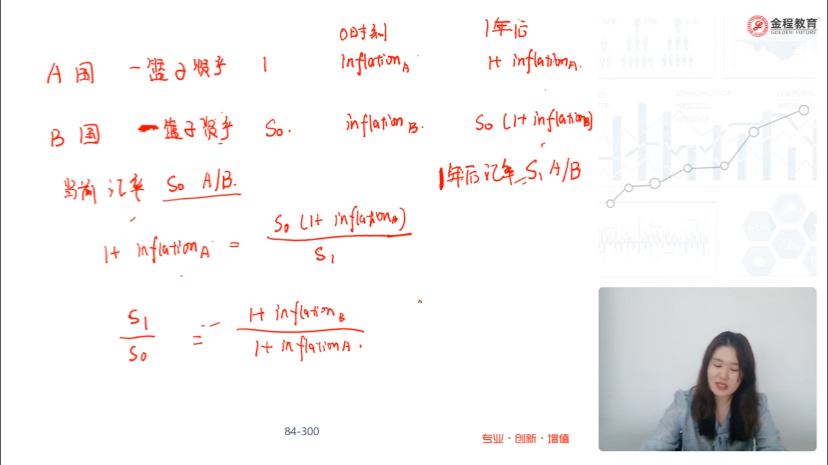 0时刻 1年后
A国 一篮子货币 1 inflation A 1+ inflation A.
B国 一篮子货币 S0. inflation B. S0 (1+ inflation B)
当前汇率 S0 A/B. 1年后汇率 S1 A/B
1+ inflation A = S0 (1+ inflation B) / S1
S1 / S0 = 1+ inflation B / 1+ inflation A.
84-300
专业·创新·增值
金程教育
GOLDEN FUTURE